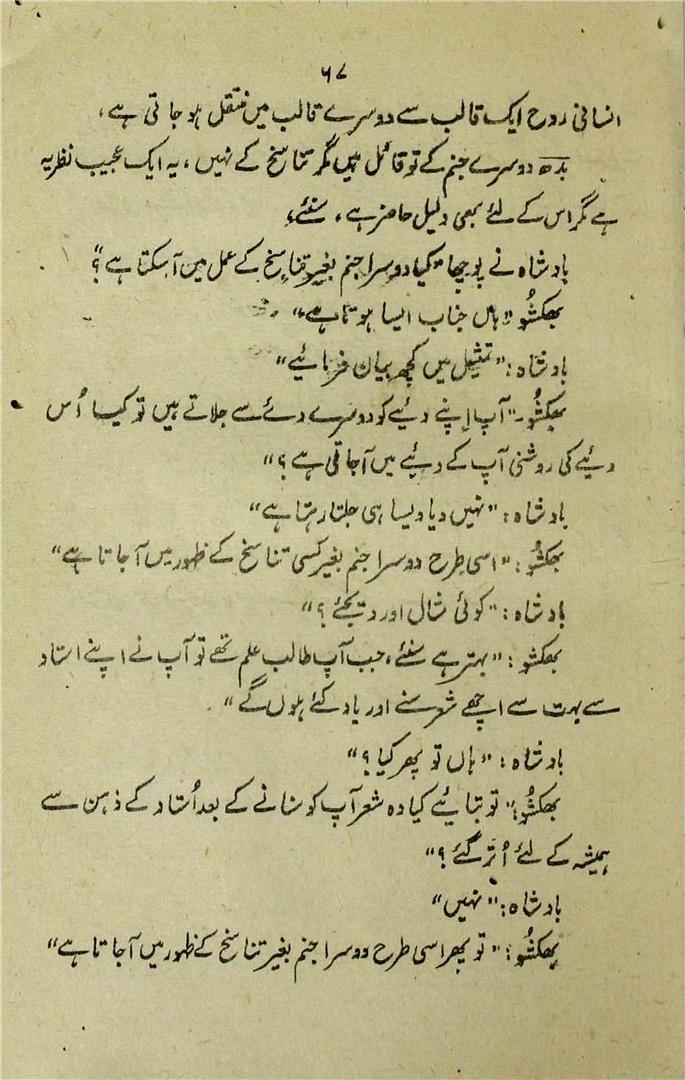 ۶۷
انسانی روح ایک قالب سے دوسرے قالب میں منتقل ہو جاتی ہے،
بدھ دوسرے جنم کے تو قائل ہیں مگر تناسخ کے نہیں، یہ ایک عجیب نظریہ
ہے مگر اس کے لئے بھی دلیل حاضر ہے، سنئے،
بادشاہ نے پوچھا "کیا دوسرا جنم بغیر تناسخ کے عمل میں آ سکتا ہے"؟
بھکشُو "ہاں جناب ایسا ہوتا ہے،"
بادشاہ: "تمثیل میں کچھ بیان فرمائیے"
بھکشُو۔ "آپ اپنے دئیے کو دوسرے دئے سے جلاتے ہیں تو کیا اُس
دئیے کی روشنی آپ کے دئیے میں آ جاتی ہے؟"
بادشاہ: "نہیں دیا ویسا ہی جلتا رہتا ہے"
بھکشُو: "اسی طرح دوسرا جنم بغیر کسی تناسخ کے ظہور میں آ جاتا ہے"
بادشاہ: "کوئی مثال اور دیجئے؟"
بھکشو: "بہتر ہے سنئے، جب آپ طالب علم تھے تو آپ نے اپنے استاد
سے بہت سے اچھے شعر سنے اور یاد کئے ہوں گے"
بادشاہ: "ہاں تو پھر کیا؟"
بھکشُو: "تو بتائیے کیا وہ شعر آپ کو سنانے کے بعد اُستاد کے ذہن سے
ہمیشہ کے لئے اُتر گئے؟"
بادشاہ: "نہیں"
بھکشُو: "تو پھر اسی طرح دوسرا جنم بغیر تناسخ کے ظہور میں آ جاتا ہے"